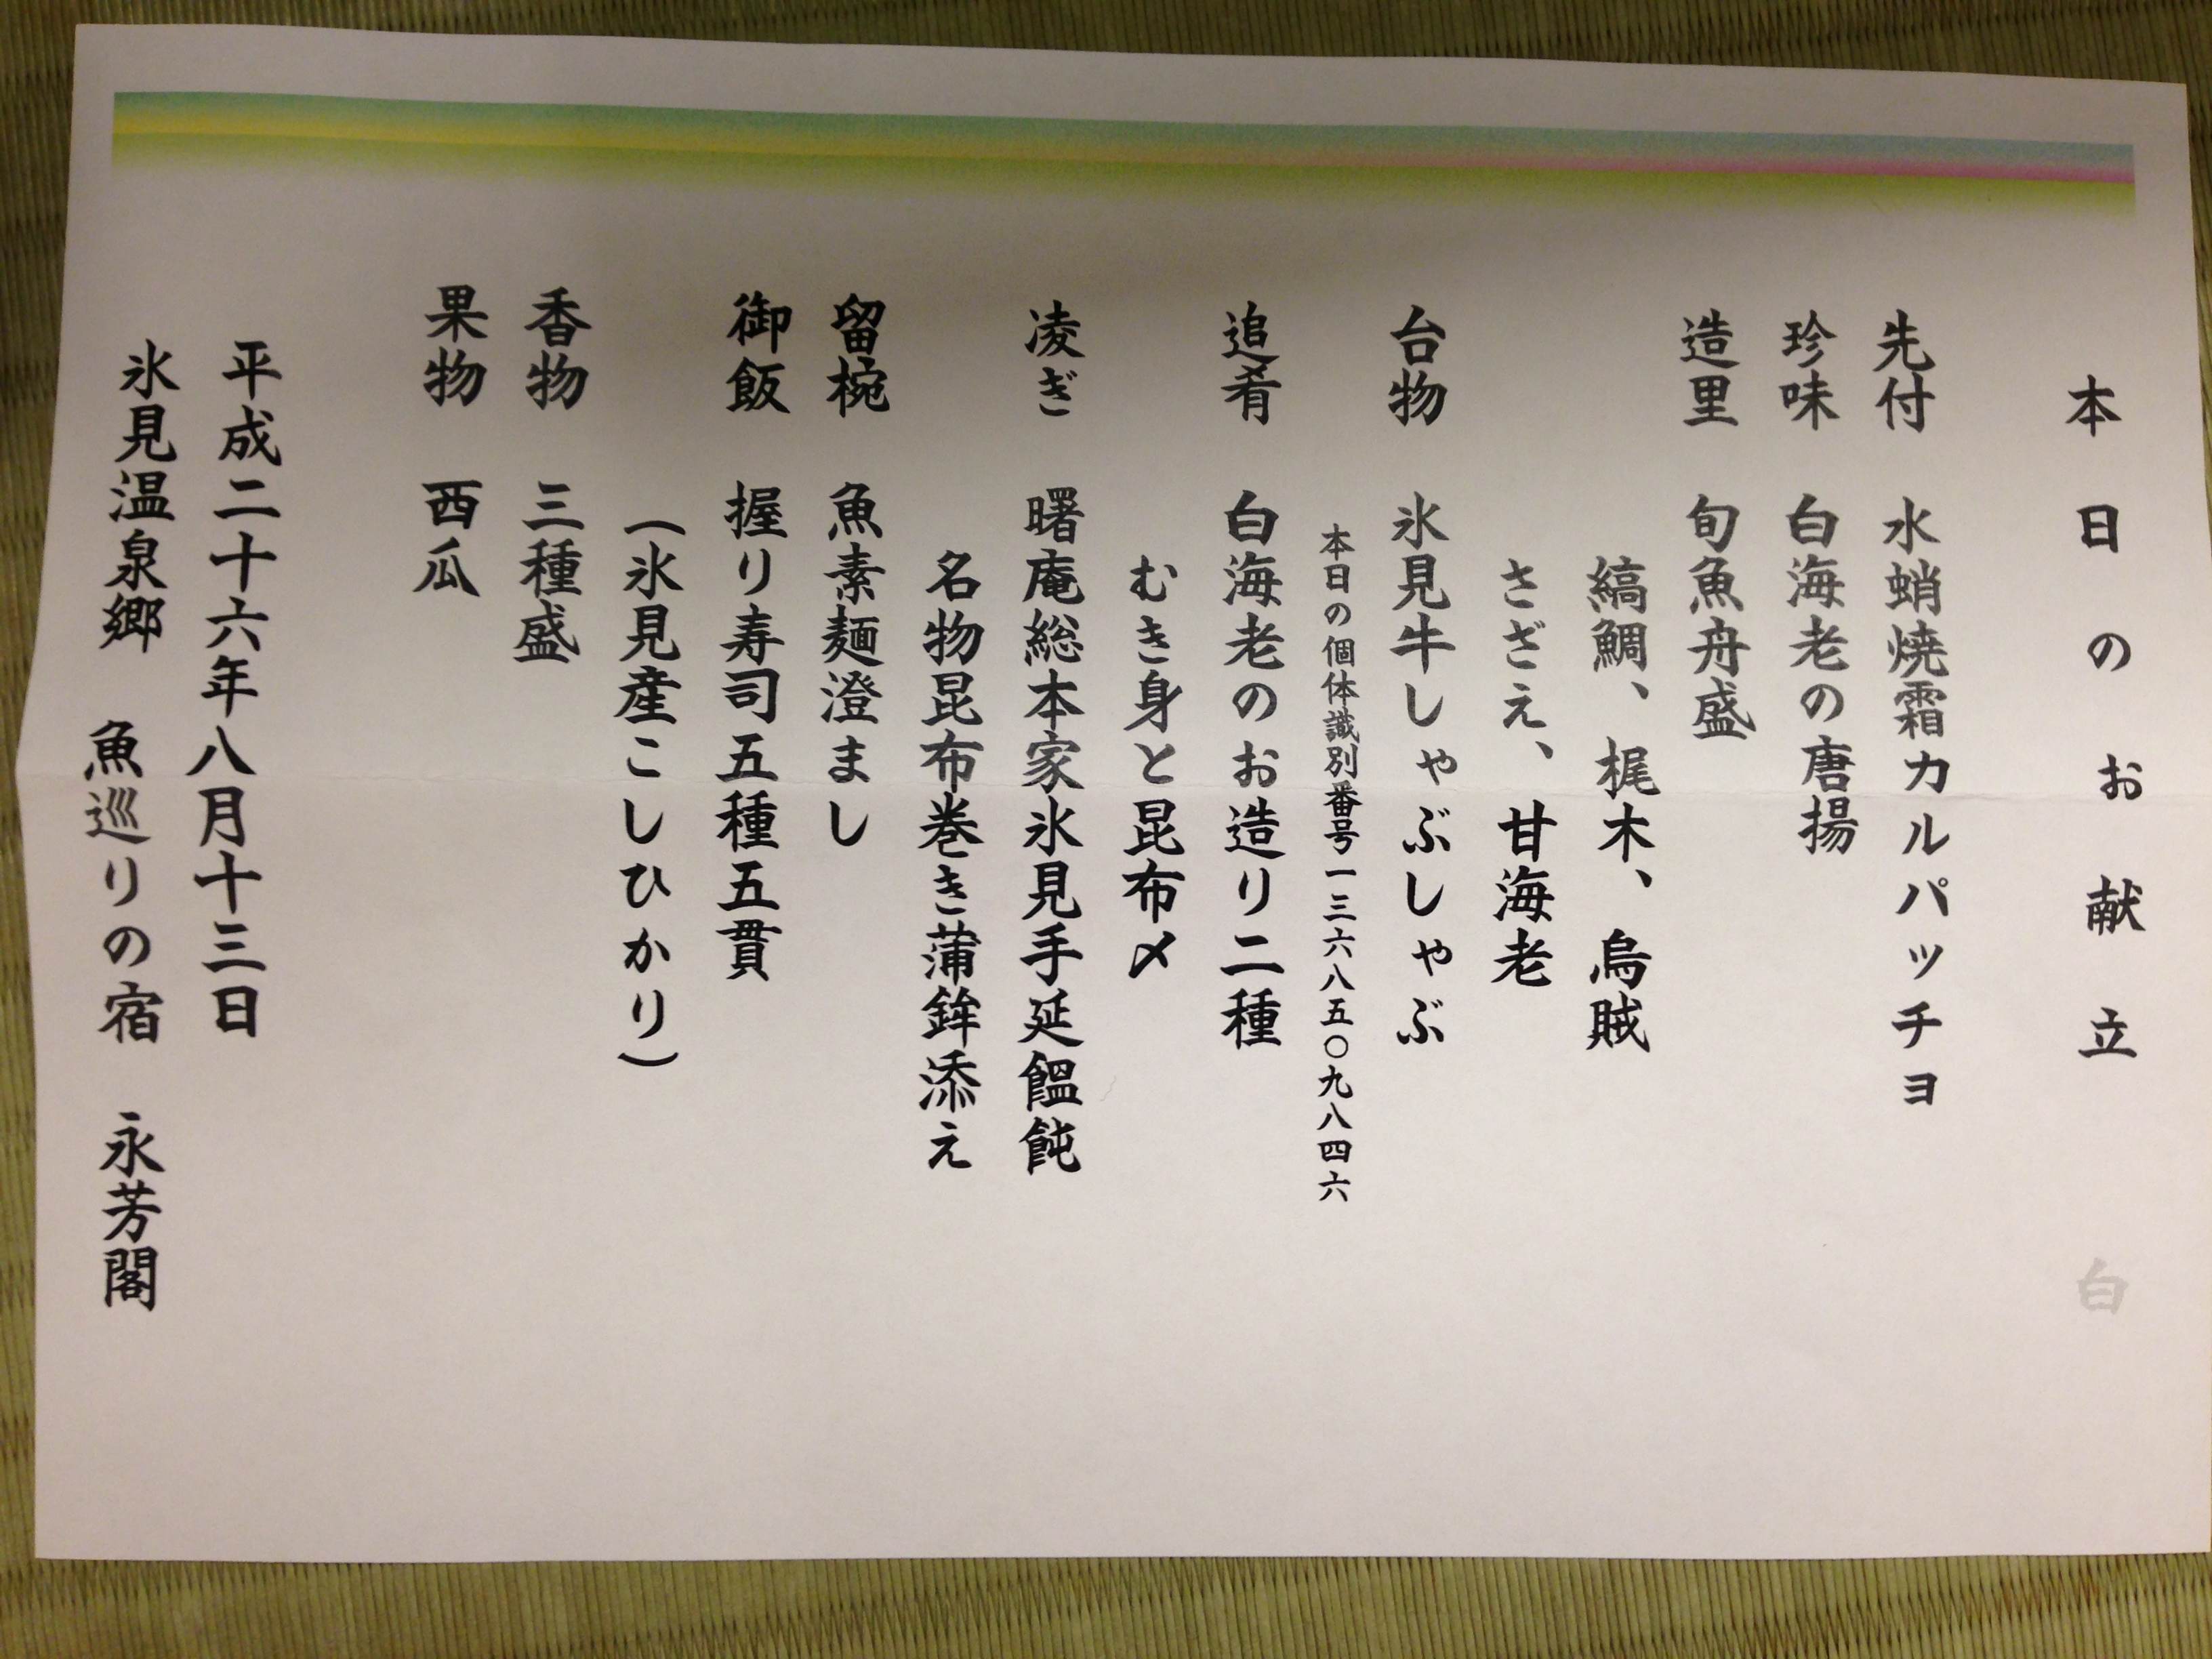 本日のお献立　白
先付　水蛸焼霜カルパッチョ
珍味　白海老の唐揚
造里　旬魚舟盛
縞鯛、梶木、烏賊
さざえ、甘海老
台物　氷見牛しゃぶしゃぶ
本日の個体識別番号一三六八五〇九八四六
追肴　白海老のお造り二種
むき身と昆布〆
凌ぎ　曙庵総本家氷見手延饂飩
名物昆布巻き蒲鉾添え
留椀　魚素麺澄まし
御飯　握り寿司五種五貫
（氷見産こしひかり）
香物　三種盛
果物　西瓜
平成二十六年八月十三日
氷見温泉郷　魚巡りの宿　永芳閣